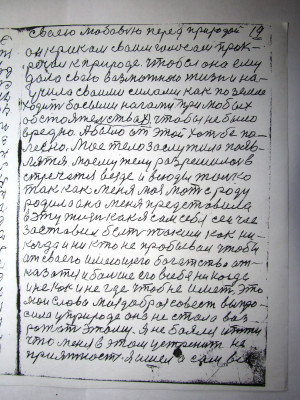 своею любовию перед природой 19
он крикам своим голосам прок-
речал к природе. чтобы она ему
дала свого возможного жизни и на-
учила своими силами как по земле
ходить босыми ногами при любых
обстоятельствах, чтобы не было
вредно. А было от этой хотьбе по-
лесно. Мое тело заслужило появ-
лятся моему телу разрешилось в
стречатся везде и всюду только
так как меня моя мать сроду
родила она меня представила
в эту жизнь как я сам себя сейчас
заставил быть таким как ни-
когда и ни кто не пробывал чтобы
от своего имеющего богатства от-
казатся и больше его в себя никогда
и не как и не где чтобы не иметь. Это
мои слова моя добрая совесть выпро-
сила у природе она не стала воз
рожать этому. Я не боялся итти
что меня в этом устренит не
приятность. Я шел и сам вс